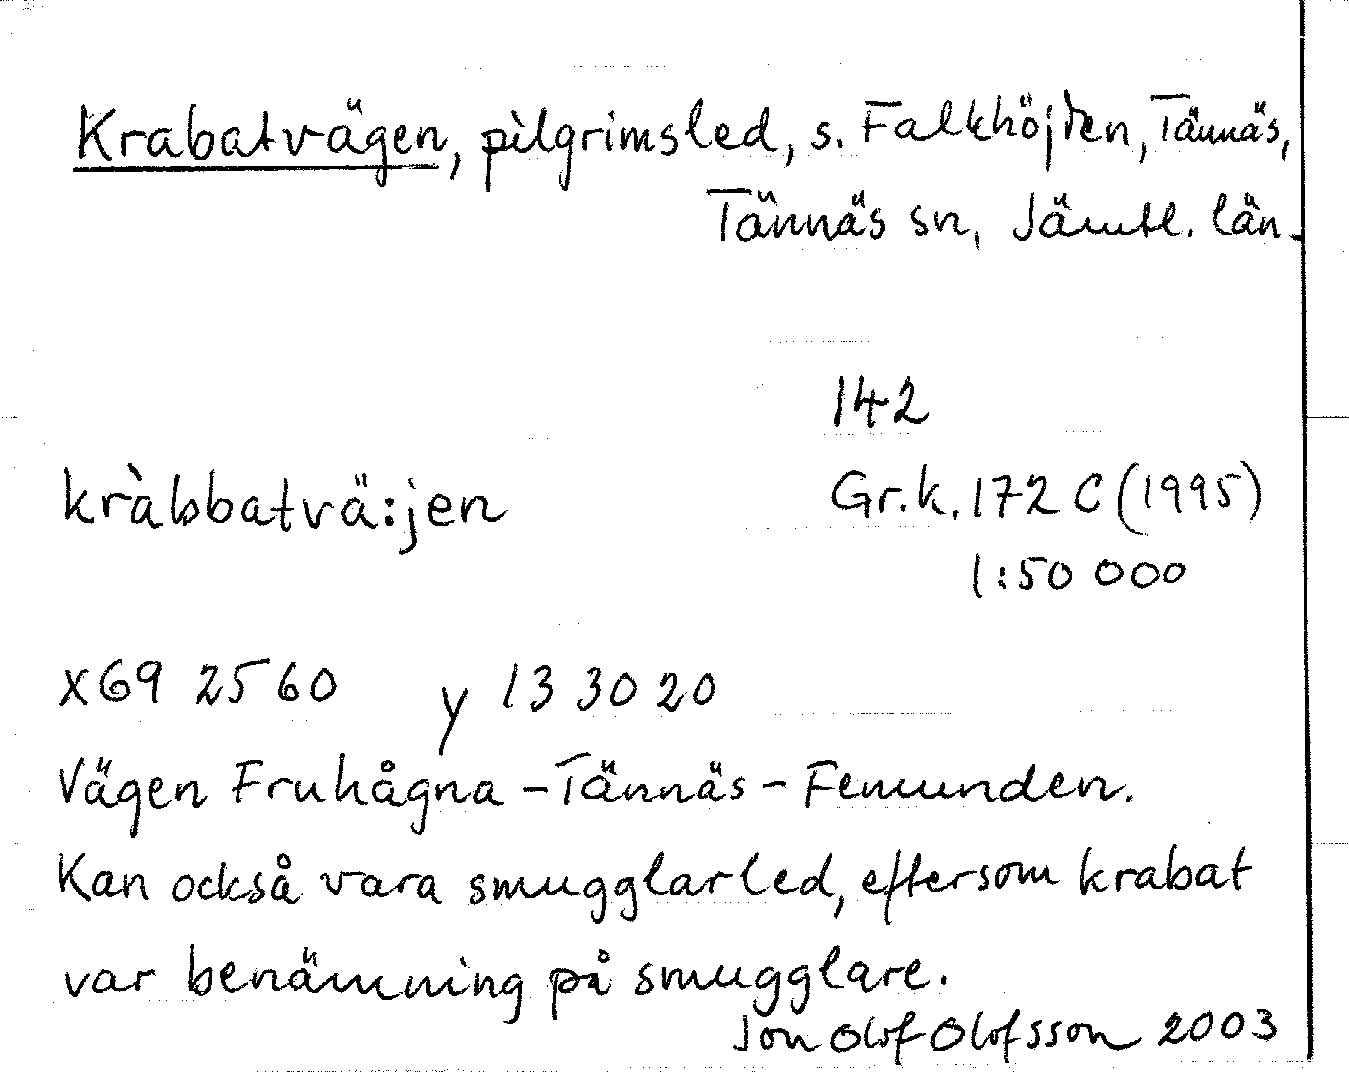 Krabatvägen, pilgrimsled, s. Falkhöjden, Tännäs,
Tännäs sn, Jämtl. län.
142
kràbbatvä:jen
Gr.k. 172 C (1995)
1:50 000
x 69 25 60 y 13 30 20
Vägen Fruhågna - Tännäs - Femunden.
Kan också vara smugglarled, eftersom krabat
var benämning på smugglare.
Jon Olof Olofsson 2003